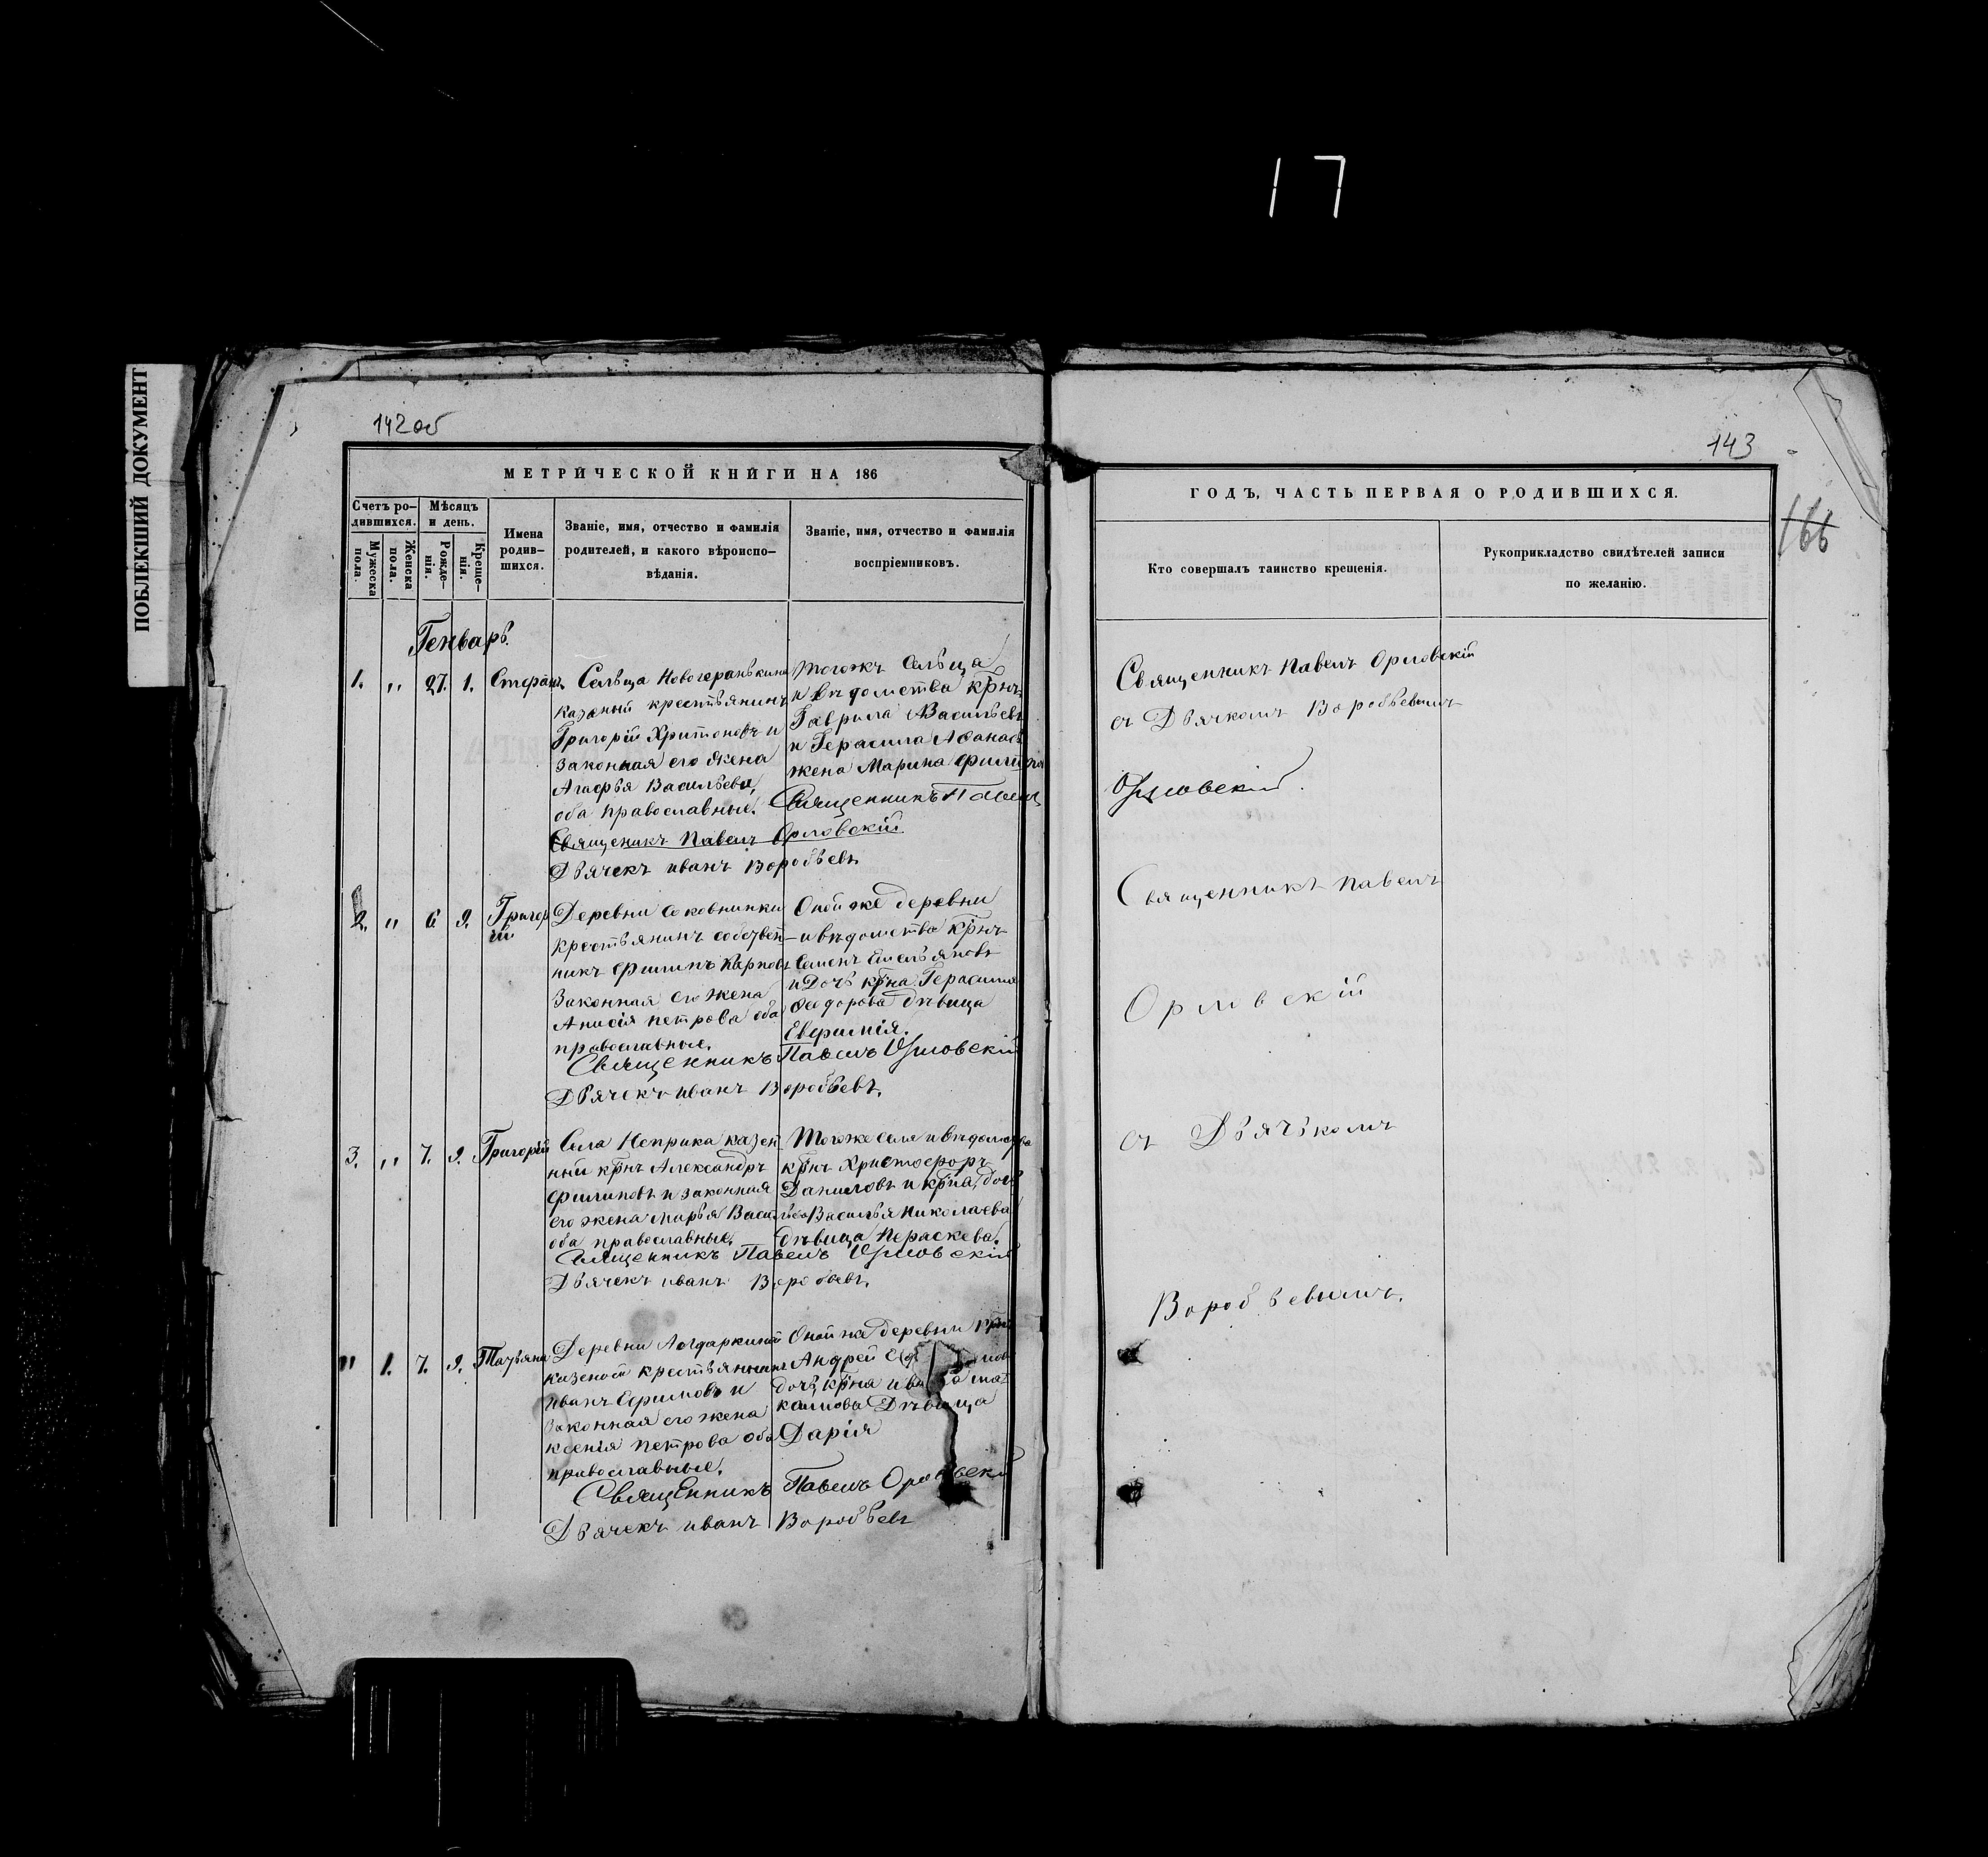 17
ПОБЛЕКШИЙ ДОКУМЕНТ
142об
МЕТРИЧЕСКОЙ КНИГИ НА 186
Счетъ ро-
дившихся.
Мужеска
пола.
Женска
пола.
Мѣсяцъ
и день.
Рожде-
нія.
Креще-
нія.
Имена
родив-
шихся.
Званіе, имя, отчество и фамилія
родителей, и какого вѣроиспо-
вѣданія.
Званіе, имя, отчество и фамилія
воспріемниковъ.
Генварь.
1. „ 27. 1. Стефанъ
Сельца
казеный крестьянинъ
Григорій Харитоновъ и
законная его жена
Агафья Васильева,
оба православные.
Тогожъ сельца
и вѣдомства крнъ
Гаврила Васильевъ
и Герасима Афанась
жена Марина
Священникъ Павелъ
Священикъ Павелъ Орловскій
Дьячекъ иванъ Воробьевъ
2. „ 6 9. Григор
ій
Деревни Соковнинки
крестьянинъ собствен-
никъ Филипъ Карповъ
Законная его жена
Анисія петрова оба
православные.
Оной же деревни
и вѣдомства крнъ
Семенъ Емельяновъ
и Дочь крна Герасима
Федорова дѣвица
Евфимія.
Священникъ Павелъ Орловскій
Дьячекъ иванъ Воробьевъ.
3. „ 7. 9. Григорій
Села Неприка казен
ный крнъ Александръ
Филиповъ и законная
его жена марья Васильева
оба православные.
Тогоже села и вѣдомства
крнъ Христофоръ
Даниловъ и крна дочь
Василья Николаева
дѣвица Пераскева.
Священникъ Павелъ Орловскій
Дьячекъ иванъ Воробьевъ.
„ 1. 7. 9. Татьяна
Деревни
казеной крестьянинъ
иванъ Ефимовъ и
Законная его жена
ксенія петрова оба
православные.
Оной же деревни крнъ
Андрей
дочь крна
Дѣвица
Дарія
Священникъ Павелъ Орловскій
Дьячекъ иванъ Воробьевъ
143
166
ГОДЪ, ЧАСТЬ ПЕРВАЯ О РОДИВШИХСЯ.
Кто совершалъ таинство крещенія.
Рукоприкладство свидѣтелей записи
по желанію.
Священникъ Павелъ Орловскій
съ Дьячкомъ Воробьевымъ
Орловскій.
Священникъ павелъ
Орловскій
съ Дьячькомъ
Воробьевымъ.